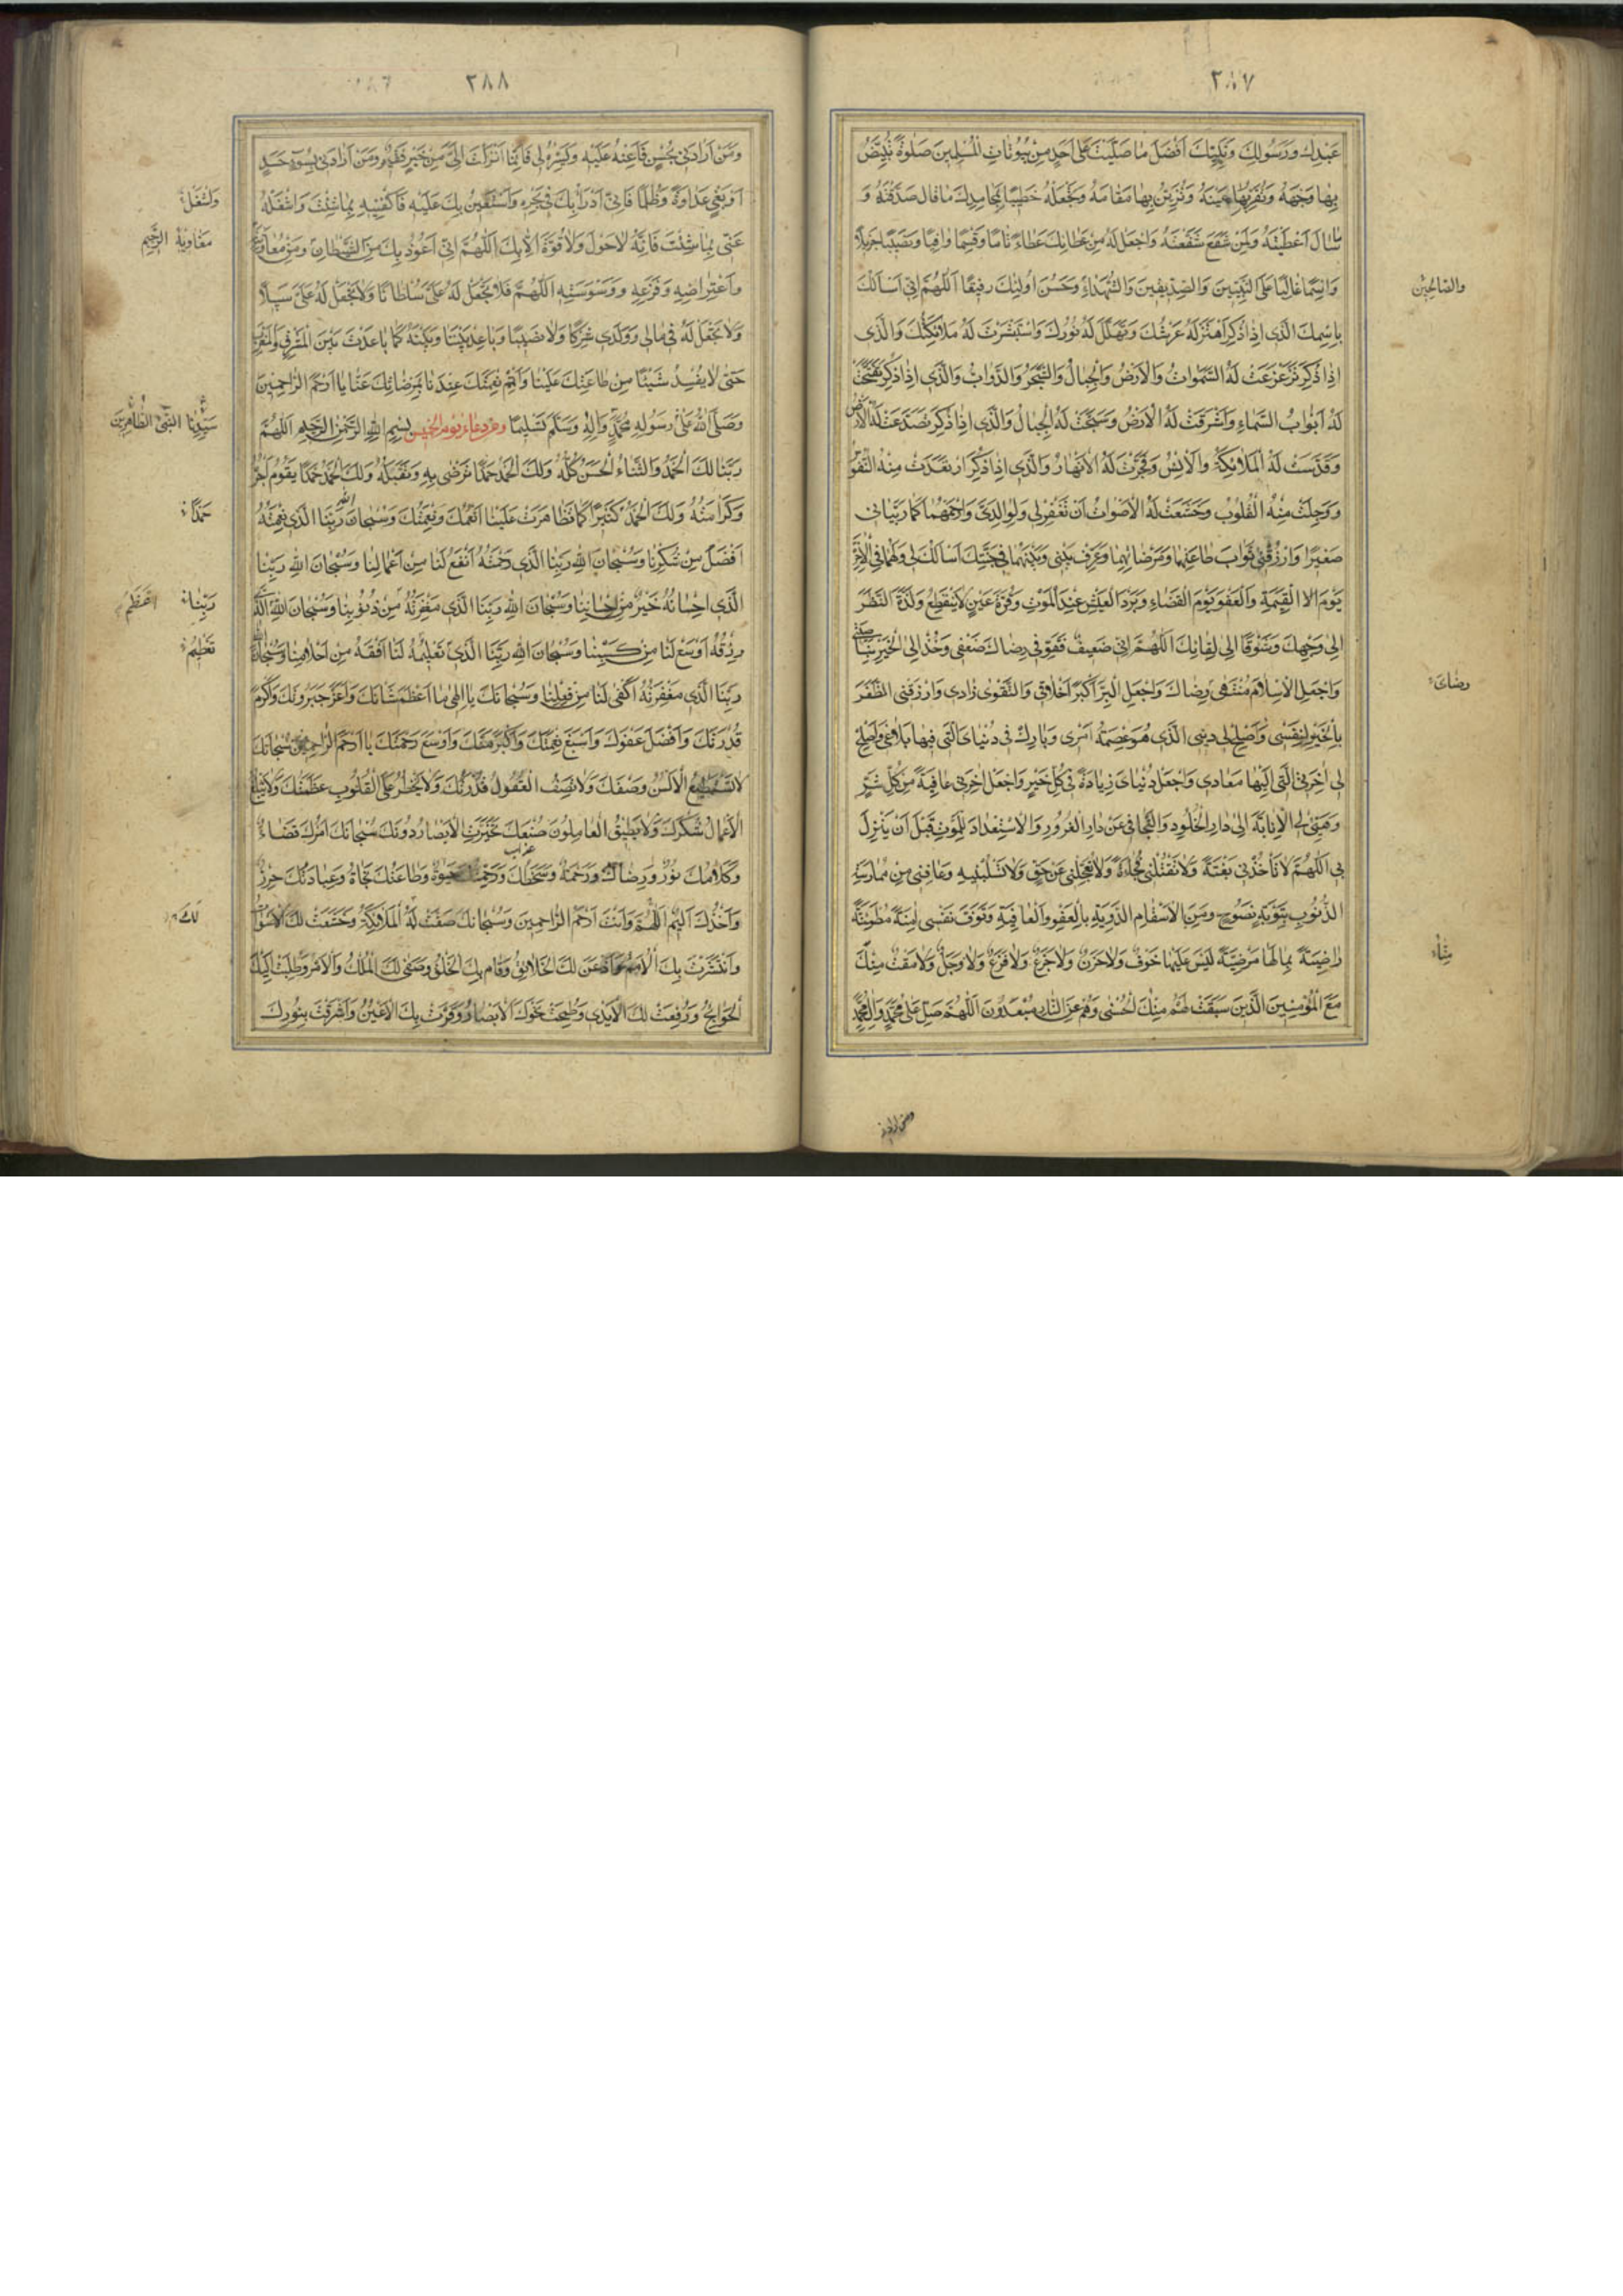 ٢٨٧
عَبْدِكَ وَرَسُولِكَ وَنَبِيِّكَ اَفْضَلَ مَا صَلَّيْتَ عَلٰى اَحَدٍ مِنْ بُيُوتَاتِ الْمُسْلِمِينَ صَلٰوةً تُبَيِّضُ
بِهَا وَجْهَهُ وَتُقِرُّ بِهَا عَيْنَهُ وَتُزَيِّنُ بِهَا مَقَامَهُ وَتَجْعَلُهُ خَطِيبًا بِمَحَامِدِكَ مَا قَالَ صَدَّقْتَهُ وَ
مَا سَاَلَ اَعْطَيْتَهُ وَلِمَنْ شَفَعَ شَفَّعْتَهُ وَاجْعَلْ لَهُ مِنْ عَطَائِكَ عَطَاءً تَامًّا وَقِسْمًا وَافِيًا وَنَصِيبًا جَزِيلًا
وَاسْمًا عَالِيًا عَلَى النَّبِيِّينَ وَالصِّدِّيقِينَ وَالشُّهَدَاءِ وَحَسُنَ اُولٰئِكَ رَفِيقًا اَللّٰهُمَّ اِنِّي اَسْاَلُكَ
والصَّالِحِينَ
بِاسْمِكَ الَّذِي اِذَا ذُكِرَ اهْتَزَّ لَهُ عَرْشُكَ وَتَهَلَّلَ لَهُ نُورُكَ وَاسْتَبْشَرَتْ لَهُ مَلَائِكَتُكَ وَالَّذِي
اِذَا ذُكِرَ تَزَعْزَعَتْ لَهُ السَّمٰوَاتُ وَالْاَرْضُ وَالْجِبَالُ وَالشَّجَرُ وَالدَّوَابُّ وَالَّذِي اِذَا ذُكِرَ تَفَتَّحَتْ
لَهُ اَبْوَابُ السَّمَاءِ وَاَشْرَقَتْ لَهُ الْاَرْضُ وَسَبَّحَتْ لَهُ الْجِبَالُ وَالَّذِي اِذَا ذُكِرَ تَصَدَّعَتْ لَهُ الْاَرْضُ
وَقَدَّسَتْ لَهُ الْمَلَائِكَةُ وَالْاِنْسُ وَتَفَجَّرَتْ لَهُ الْاَنْهَارُ وَالَّذِي اِذَا ذُكِرَ ارْتَعَدَتْ مِنْهُ النُّفُوسُ
وَوَجِلَتْ مِنْهُ الْقُلُوبُ وَخَشَعَتْ لَهُ الْاَصْوَاتُ اَنْ تَغْفِرَ لِي وَلِوَالِدَيَّ وَارْحَمْهُمَا كَمَا رَبَّيَانِي
صَغِيرًا وَارْزُقْنِي ثَوَابَ طَاعَتِهِمَا وَمَرْضَاتِهِمَا وَعَرِّفْ بَيْنِي وَبَيْنَهُمَا فِي جَنَّتِكَ اَسْاَلُكَ لِي وَلَهُمَا فِي الْاٰخِرَةِ
يَوْمَ الْقِيٰمَةِ وَالْعَفْوَ يَوْمَ الْقَضَاءِ وَبَرْدَ الْعَيْشِ عِنْدَ الْمَوْتِ وَقُرَّةَ عَيْنٍ لَا تَنْقَطِعُ وَلَذَّةَ النَّظَرِ
اِلٰى وَجْهِكَ وَشَوْقًا اِلٰى لِقَائِكَ اَللّٰهُمَّ اِنِّي ضَعِيفٌ فَقَوِّ فِي رِضَاكَ ضَعْفِي وَخُذْ اِلَى الْخَيْرِ بِنَاصِيَتِي
وَاجْعَلِ الْاِسْلَامَ مُنْتَهٰى رِضَاكَ وَاجْعَلِ الْبِرَّ اَكْبَرَ اَخْلَاقِي وَالتَّقْوٰى زَادِي وَارْزُقْنِي الظَّفَرَ
رضَائى
بِالْخَيْرِ لِنَفْسِي وَاَصْلِحْ لِي دِينِي الَّذِي هُوَ عِصْمَةُ اَمْرِي وَبَارِكْ فِي دُنْيَايَ الَّتِي فِيهَا بَلَاغِي وَاَصْلِحْ
لِي اٰخِرَتِي الَّتِي اِلَيْهَا مَعَادِي وَاجْعَلْ دُنْيَايَ زِيَادَةً فِي كُلِّ خَيْرٍ وَاجْعَلْ اٰخِرَتِي عَافِيَةً مِنْ كُلِّ شَرٍّ
وَهَيِّئْ لِيَ الْاِنَابَةَ اِلٰى دَارِ الْخُلُودِ وَالتَّجَافِي عَنْ دَارِ الْغُرُورِ وَالْاِسْتِعْدَادَ لِلْمَوْتِ قَبْلَ اَنْ يَنْزِلَ
بِي اَللّٰهُمَّ لَا تَاْخُذْنِي بَغْتَةً وَلَا تَقْتُلْنِي فُجَاءَةً وَلَا تُعْجِلْنِي عَنْ حَقٍّ وَلَا تَسْلُبْنِيهِ وَعَافِنِي مِنْ مُمَارَسَةِ
الذُّنُوبِ بِتَوْبَةٍ نَصُوحٍ وَمِنَ الْاَسْقَامِ الدَّوِيَّةِ بِالْعَفْوِ وَالْعَافِيَةِ وَتَوَفَّ نَفْسِي اٰمِنَةً مُطْمَئِنَّةً
رَاضِيَةً بِمَا لَهَا مَرْضِيَّةً لَيْسَ عَلَيْهَا خَوْفٌ وَلَا حَزَنٌ وَلَا جَزَعٌ وَلَا فَزَعٌ وَلَا وَجَلٌ وَلَا مَقْتٌ مِنْكَ
مَعَ الْمُؤْمِنِينَ الَّذِينَ سَبَقَتْ لَهُمْ مِنْكَ الْحُسْنٰى وَهُمْ عَنِ النَّارِ مُبْعَدُونَ اَللّٰهُمَّ صَلِّ عَلٰى مُحَمَّدٍ وَاٰلِ مُحَمَّدٍ
ومن ارادنى
٢٨٨
وَمَنْ اَرَادَنِي بِحُسْنٍ فَاَعِنْهُ عَلَيْهِ وَيَسِّرْهُ لِي فَاِنِّي لِمَا اَنْزَلْتَ اِلَيَّ مِنْ خَيْرٍ فَقِيرٌ وَمَنْ اَرَادَنِي بِسُوءٍ حَسَدٍ
اَوْ بَغْيٍ عَدَاوَةً وَظُلْمًا فَاِنِّي اَدْرَاُ بِكَ فِي نَحْرِهِ وَاَسْتَعِينُ بِكَ عَلَيْهِ فَاكْفِنِيهِ بِمَا شِئْتَ وَاشْغَلْهُ
عَنِّي بِمَا شِئْتَ فَاِنَّهُ لَا حَوْلَ وَلَا قُوَّةَ اِلَّا بِكَ اَللّٰهُمَّ اِنِّي اَعُوذُ بِكَ مِنَ الشَّيْطَانِ وَمِنْ
الرَّجِيمِ
وَاعْتِرَاضِهِ وَفَزَعِهِ وَوَسْوَسَتِهِ اَللّٰهُمَّ فَلَا تَجْعَلْ لَهُ عَلَيَّ سُلْطَانًا وَلَا تَجْعَلْ لَهُ عَلَيَّ سَبِيلًا
وَلَا تَجْعَلْ لَهُ فِي مَالِي وَوَلَدِي شِرْكًا وَلَا نَصِيبًا وَبَاعِدْ بَيْنَنَا وَبَيْنَهُ كَمَا بَاعَدْتَ بَيْنَ الْمَشْرِقِ وَالْمَغْرِبِ
حَتّٰى لَا يُفْسِدَ شَيْئًا مِنْ طَاعَتِكَ عَلَيْنَا وَاَتْمِمْ نِعْمَتَكَ عِنْدَنَا بِمَرْضَاتِكَ عَنَّا يَا اَرْحَمَ الرَّاحِمِينَ
وَصَلَّى اللّٰهُ عَلٰى رَسُولِهِ مُحَمَّدٍ وَاٰلِهِ وَسَلَّمَ تَسْلِيمًا ومن دعاء يوم الخميس بِسْمِ اللّٰهِ الرَّحْمٰنِ الرَّحِيمِ اَللّٰهُمَّ
سَيِّدِنَا النَّبِيِّ الطَّاهِرِينَ
رَبَّنَا لَكَ الْحَمْدُ وَالثَّنَاءُ الْحَسَنُ كُلُّهُ وَلَكَ الْحَمْدُ حَمْدًا تَرْضٰى بِهِ وَتَقَبَّلُهُ وَلَكَ الْحَمْدُ حَمْدًا يَقُومُ
وَكَرَامَتُهُ وَلَكَ الْحَمْدُ كَثِيرًا كَمَا تَظَاهَرَتْ عَلَيْنَا اَنْعُمُكَ وَنِعْمَتُكَ وَسُبْحَانَ اللّٰهِ رَبِّنَا الَّذِي نِعْمَتُهُ
حَمْدًا
اَفْضَلُ مِنْ شُكْرِنَا وَسُبْحَانَ اللّٰهِ رَبِّنَا الَّذِي رَحْمَتُهُ اَنْفَعُ لَنَا مِنْ اَعْمَالِنَا وَسُبْحَانَ اللّٰهِ رَبِّنَا
الَّذِي اِحْسَانُهُ خَيْرٌ مِنْ اِحْسَانِنَا وَسُبْحَانَ اللّٰهِ رَبِّنَا الَّذِي مَغْفِرَتُهُ مِنْ ذُنُوبِنَا وَسُبْحَانَ اللّٰهِ الَّذِي
رَبِّنَا اَعْظَمُ
رِزْقُهُ اَوْسَعُ لَنَا مِنْ كَسْبِنَا وَسُبْحَانَ اللّٰهِ رَبِّنَا الَّذِي تَعْلِيمُهُ لَنَا اَفْقَهُ مِنْ اَحْلَامِنَا وَسُبْحَانَ اللّٰهِ
رَبِّنَا الَّذِي مَغْفِرَتُهُ اَكْفٰى لَنَا مِنْ فِعْلِنَا وَسُبْحَانَكَ يَا اِلٰهِي مَا اَعْظَمَ شَانَكَ وَاَعَزَّ جَبَرُوتَكَ وَاَكْرَمَ
قُدْرَتَكَ وَاَفْضَلَ عَفْوَكَ وَاَسْبَغَ نِعْمَتَكَ وَاَكْبَرَ مَنَّكَ وَاَوْسَعَ رَحْمَتَكَ يَا اَرْحَمَ الرَّاحِمِينَ سُبْحَانَكَ
لَا تَسْتَطِيعُ الْاَلْسُنُ وَصْفَكَ وَلَا تَصِفُ الْعُقُولُ قُدْرَتَكَ وَلَا يَخْطُرُ عَلَى الْقُلُوبِ عَظَمَتُكَ وَلَا تَبْلُغُ
الْاَعْمَالُ شُكْرَكَ وَلَا يُطِيقُ الْعَامِلُونَ صُنْعَكَ تَحَيَّرَتِ الْاَبْصَارُ دُونَكَ سُبْحَانَكَ اَمْرُكَ قَضَاءٌ
وَكَلَامُكَ نُورٌ وَرِضَاكَ رَحْمَةٌ وَسَخَطُكَ عذاب وَرَحْمَتُكَ حَيٰوةٌ وَطَاعَتُكَ نَجَاةٌ وَعِبَادَتُكَ حِرْزٌ
وَاَخْذُكَ اَلِيمٌ اَللّٰهُمَّ وَاَنْتَ اَرْحَمُ الرَّاحِمِينَ وَسُبْحَانَكَ صَفَّتْ لَهُ الْمَلَائِكَةُ وَخَشَعَتْ لَكَ الْاَصْوَاتُ
وَانْتَشَرَتْ بِكَ الْاُمَمُ لَكَ الْخَلَائِقُ وَقَامَ بِكَ الْخَلْقُ وَصَفٰى لَكَ الْمُلْكُ وَالْاَمْرُ وَطُلِبَتْ اِلَيْكَ
الْحَوَائِجُ وَرُفِعَتْ لَكَ الْاَيْدِي وَطَمَحَتْ نَحْوَكَ الْاَبْصَارُ وَقَرَّتْ بِكَ الْاَعْيُنُ وَاَشْرَقَتْ بِنُورِكَ